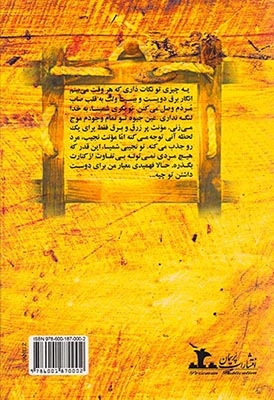 یه چیزی تو نگات داری که هر وقت می‌بینم
انگار برق دویست و بیست ولت به قلب صاب
مردم وصل می‌کنن. تو بکری شمیسا، به خدا
لنگه نداری. عین جیوه تو تمام وجودم موج
می‌زنی. مؤنث پر زرق و برق فقط برای یک
لحظه آنی توجه می‌کنه اما مؤنث نجیب، مرد
رو جذب می‌کنه. تو نجیبی شمیسا، این قدر که
هیچ مردی نمی‌تونه بی‌تفاوت از کنارت
بگذره. حالا فهمیدی معیار من برای دوست
داشتن تو چیه...
ISBN 978-600-187-000-2
9 786001 870002
انتشارات پریمان